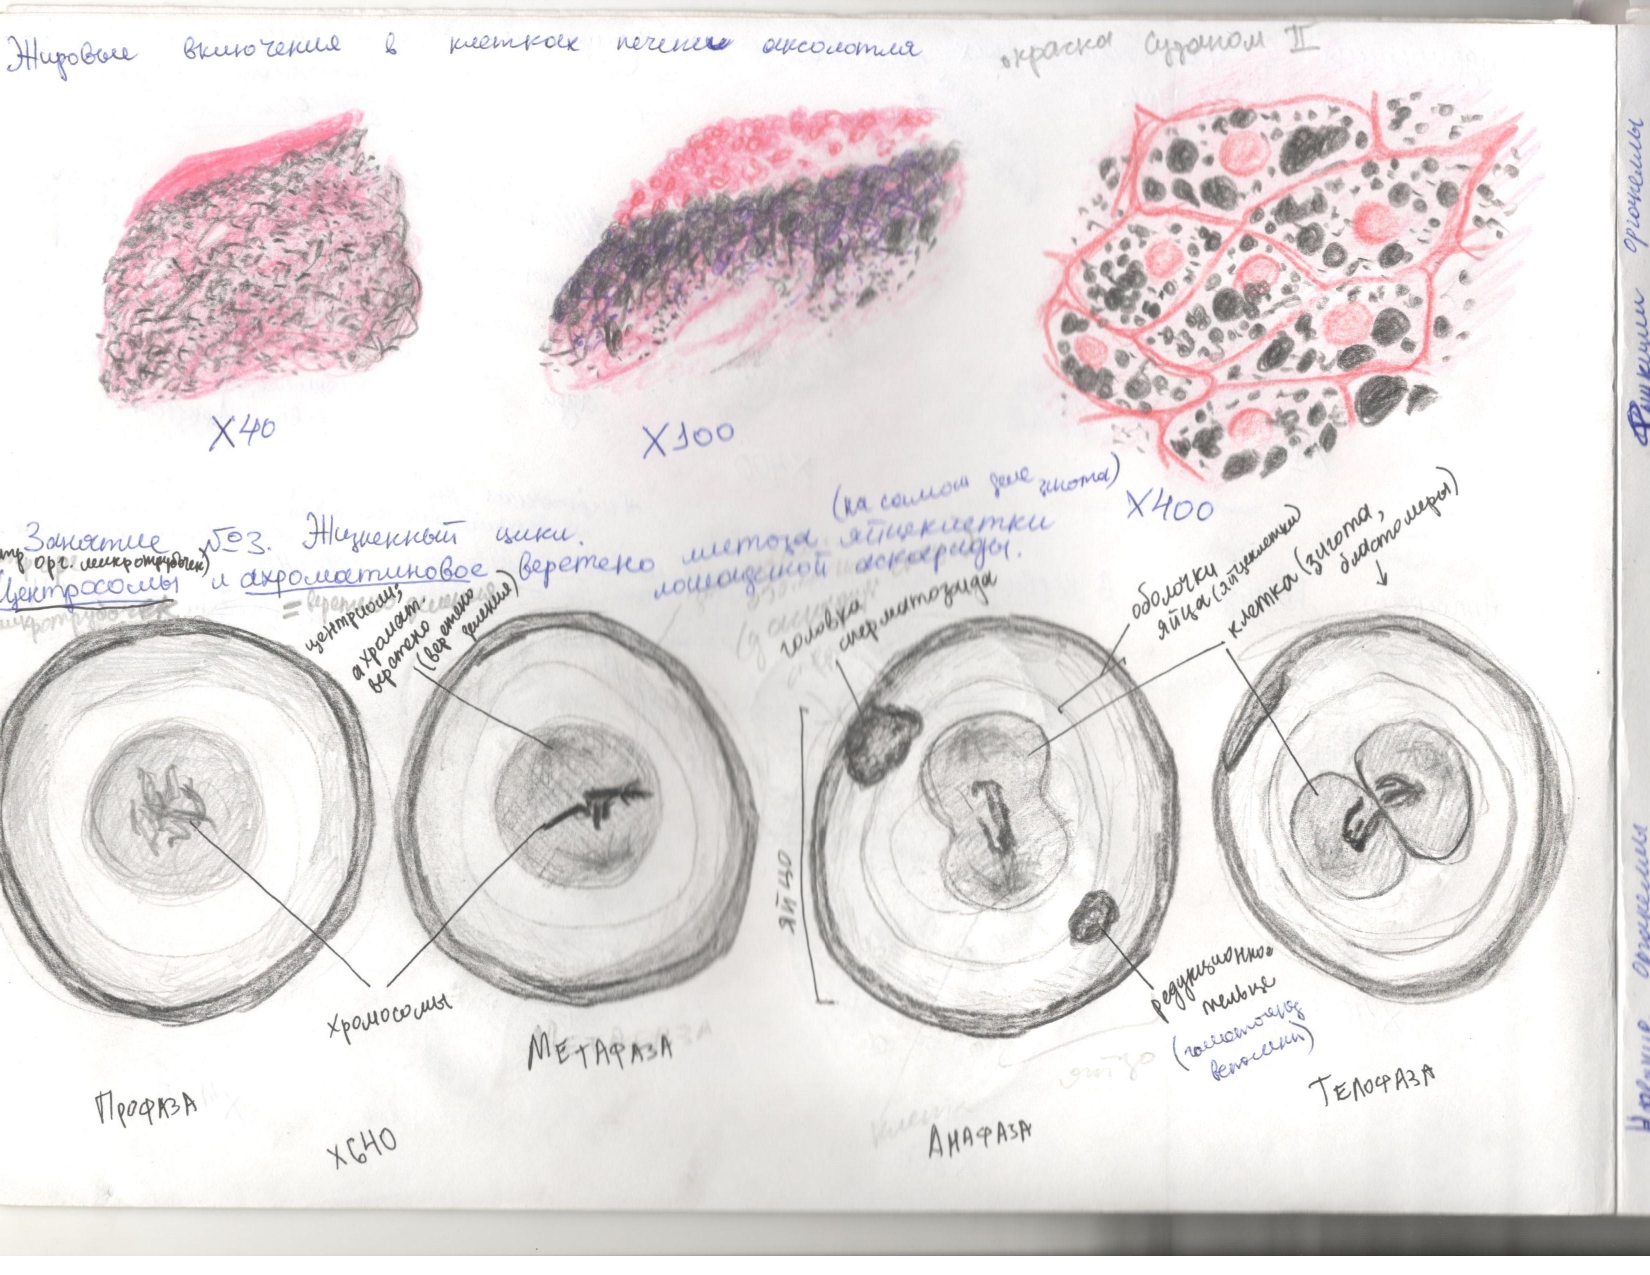 Жировые включения в клетках печени аксолотля
окраска Суданом III
X40
X100
X400
Занятие №3. Жизненный цикл.
орг. микротрубочек)
Центросомы и ахроматиновое веретено митоза яйцеклетки
(на самом деле зигота)
лошадиной аскариды.
центриоли;
ахромат.
веретено
(веретено
деления)
головка
сперматозоида
оболочки
яйца (яйцеклетки)
клетка (зигота,
бластомеры)
яйцо
хромосомы
редукционное
тельце
(гаметоцид
вспомни)
Профаза
Метафаза
Анафаза
Телофаза
X640
Функции органеллы